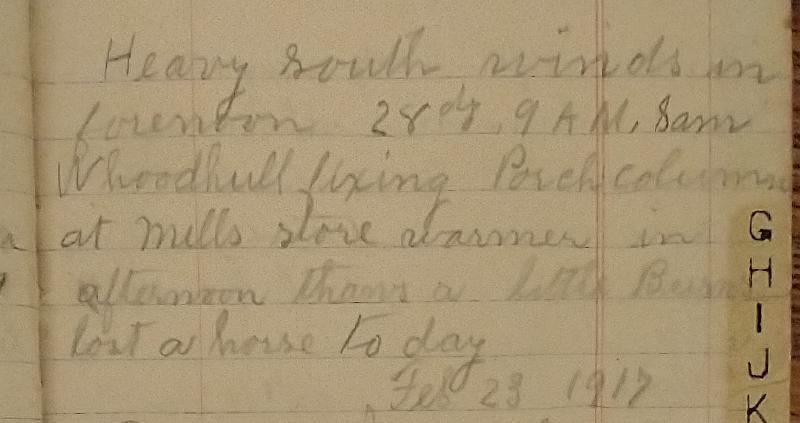 Heavy south winds in
forenoon 28 dg. 9 A M, Sam
Whoodhull fixing Porch columns
at Mills store warmer in
afternoon thaws a little
lost a horse to day
Feb 23 1917
G
H
I
J
K